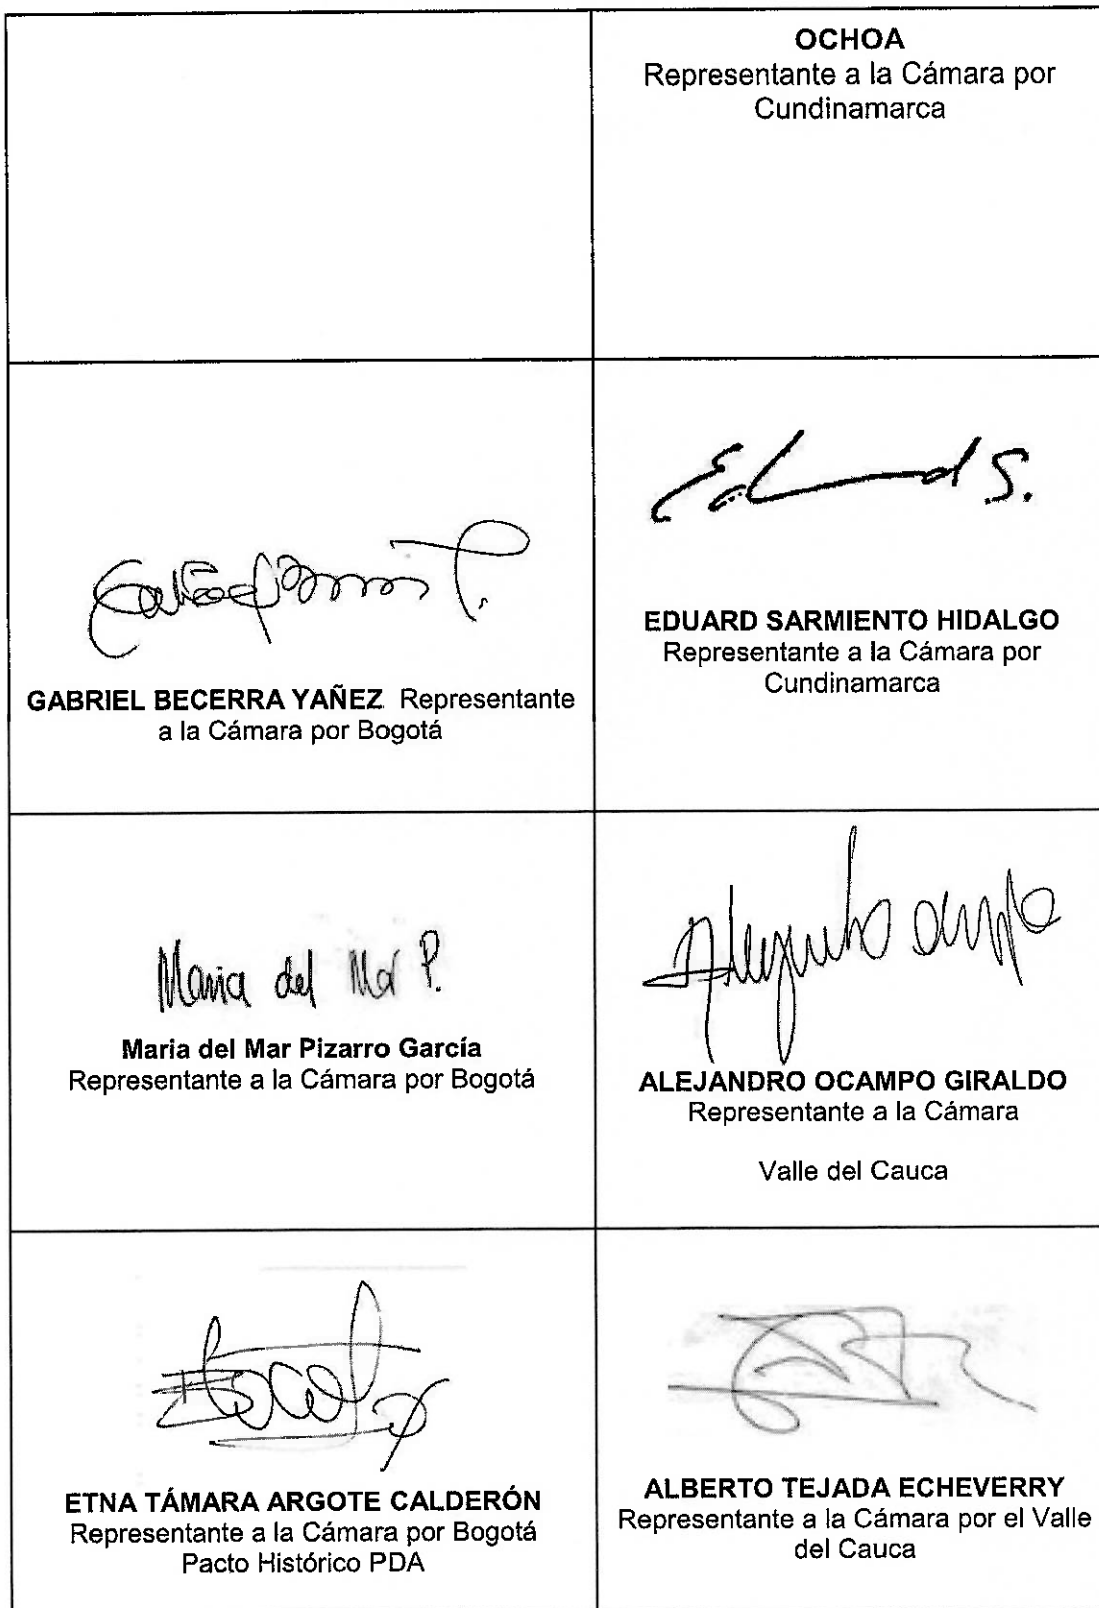 OCHOA
Representante a la Cámara por
Cundinamarca
Eduard S.
EDUARD SARMIENTO HIDALGO
Representante a la Cámara por
Cundinamarca
GABRIEL BECERRA YAÑEZ Representante
a la Cámara por Bogotá
Maria del Mar P.
Maria del Mar Pizarro García
Representante a la Cámara por Bogotá
Alejandro Ocampo
ALEJANDRO OCAMPO GIRALDO
Representante a la Cámara
Valle del Cauca
ETNA TÁMARA ARGOTE CALDERÓN
Representante a la Cámara por Bogotá
Pacto Histórico PDA
ALBERTO TEJADA ECHEVERRY
Representante a la Cámara por el Valle
del Cauca